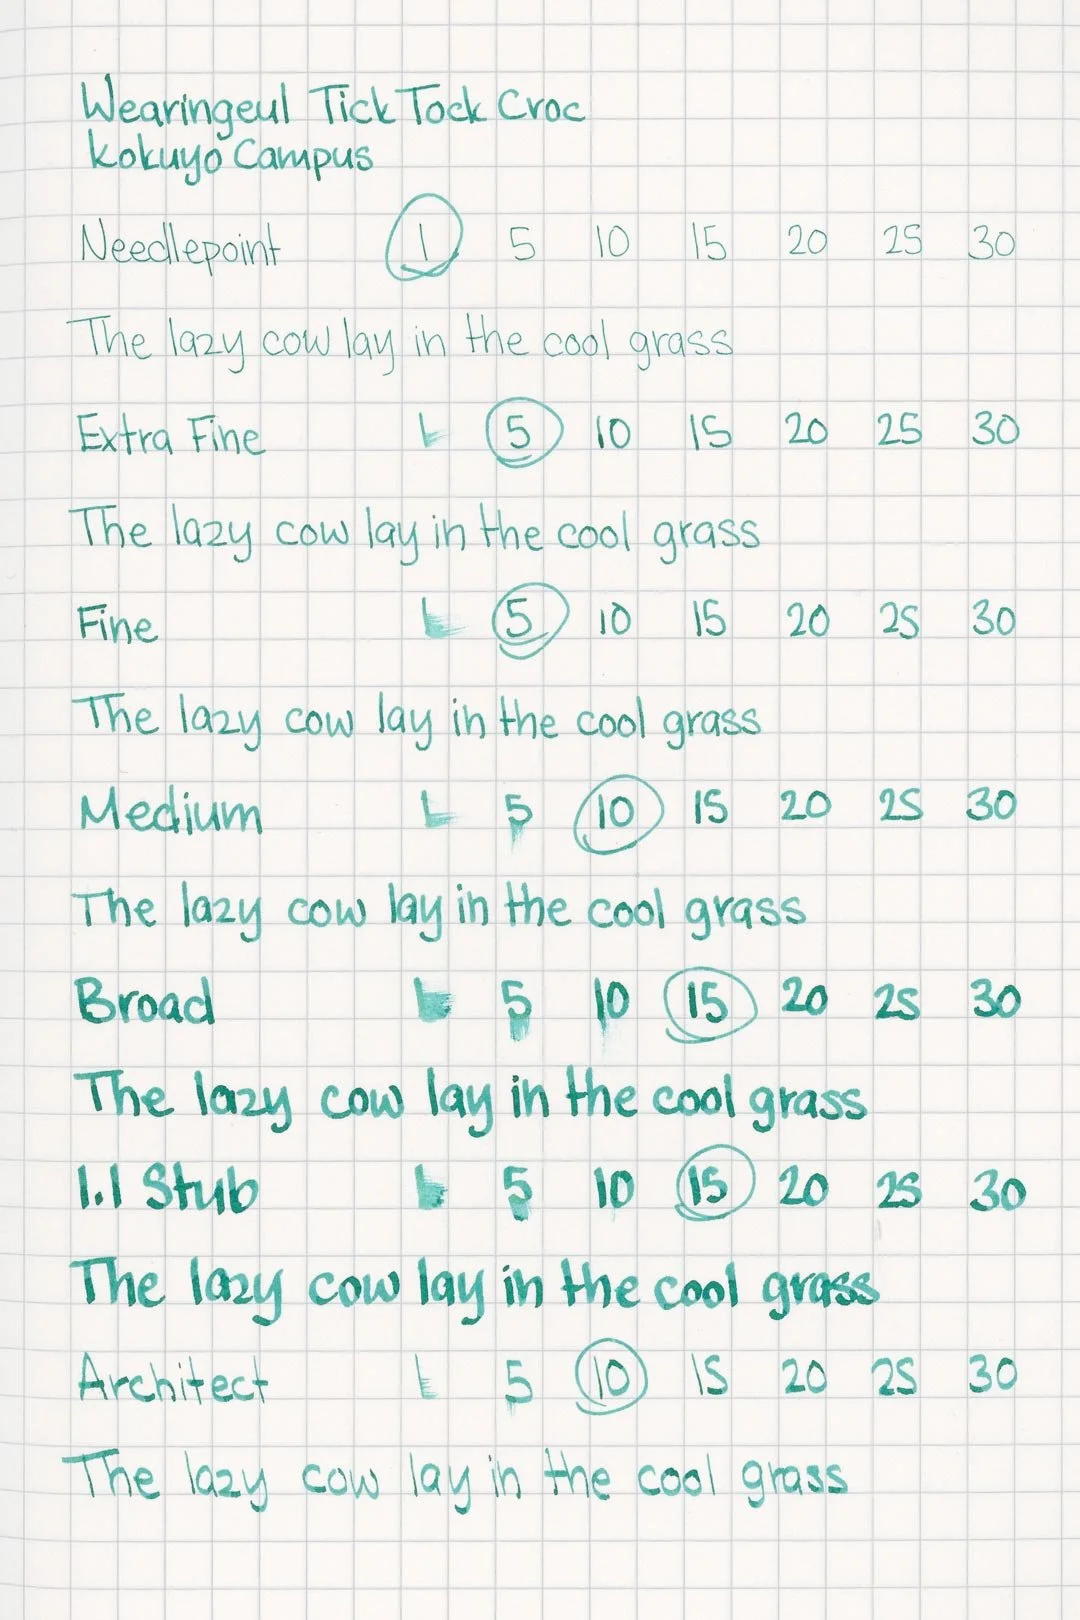 Wearingeul Tick Tock Croc
Kokuyo Campus
Needlepoint 1 5 10 15 20 25 30
The lazy cow lay in the cool grass
Extra Fine 1 5 10 15 20 25 30
The lazy cow lay in the cool grass
Fine 1 5 10 15 20 25 30
The lazy cow lay in the cool grass
Medium 1 5 10 15 20 25 30
The lazy cow lay in the cool grass
Broad 1 5 10 15 20 25 30
The lazy cow lay in the cool grass
1.1 Stub 1 5 10 15 20 25 30
The lazy cow lay in the cool grass
Architect 1 5 10 15 20 25 30
The lazy cow lay in the cool grass